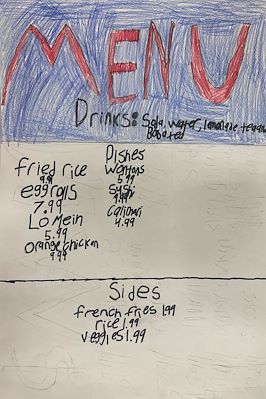 MENU
Drinks: Soda, water, lemonade tea
Dishes
fried rice
9.99
egg rolls
7.99
Lo mein
5.99
orange chicken
9.99
Wontons
5.99
Sushi
9.99
calamari
4.99
Sides
french fries 1.99
rice 1.99
veggies 1.99